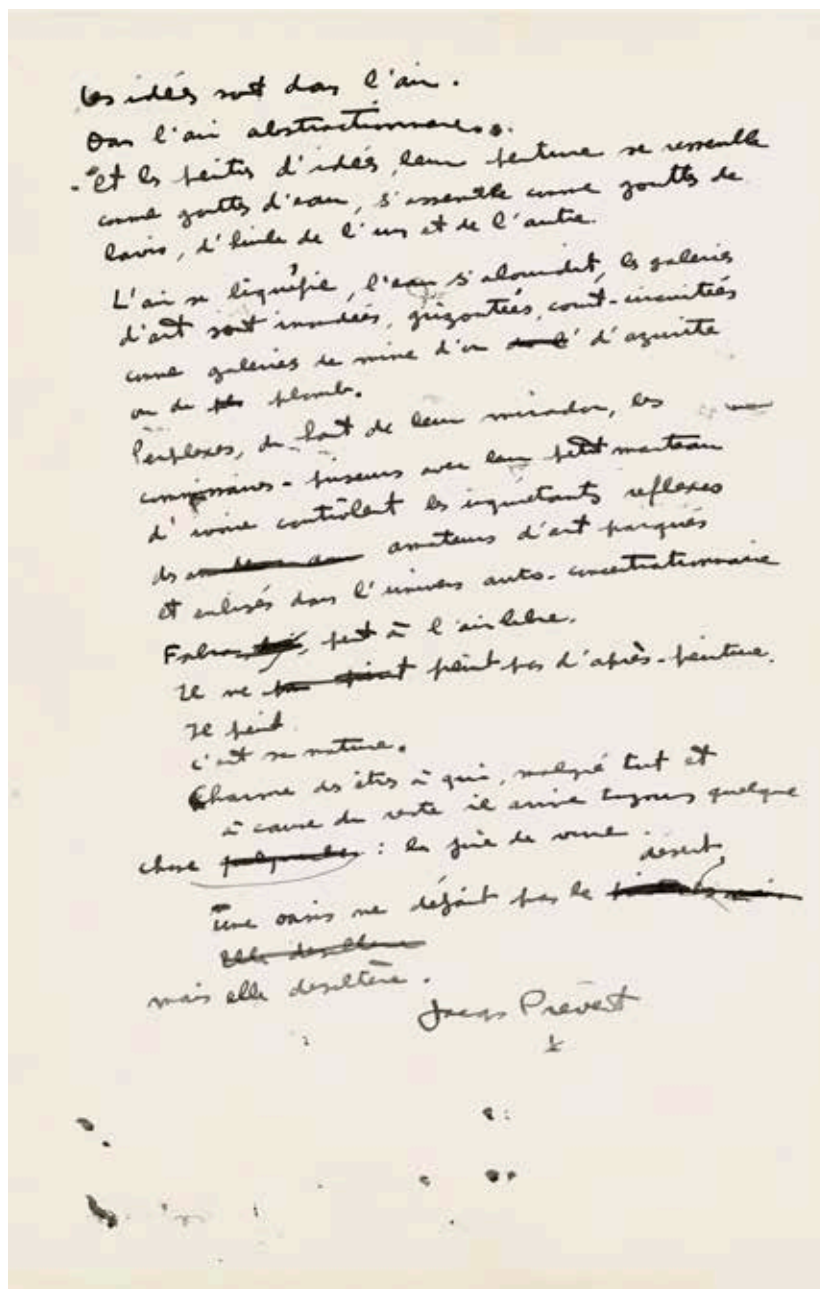 Les idées sont dans l'air.
Dans l'air abstractionnaire.
Et les peintres d'idées, leur peinture se ressemble
comme gouttes d'eau, s'assemble comme gouttes de
lavis, d'huile de l'un et de l'autre.
L'air se liquéfie, l'eau s'alourdit, les galeries
d'art sont inondées, grisoutées, court-circuitées
comme galeries de mine d'or d'azurite
ou de plomb.
Perplexes, du haut de leur mirador, les
commissaires-priseurs avec leur petit marteau
d'ivoire contrôlent les inquiétants reflexes
des amateurs d'art parqués
et enlisés dans l'univers auto-concentrationnaire
Fabra, peint à l'air libre.
Il ne peint pas d'après-peinture.
Il peint
c'est sa nature.
Charme des êtres à qui, malgré tout et
à cause du reste il arrive toujours quelque
chose : la joie de vivre.
Une oasis ne défait pas le désert
mais elle desaltère.
Jacques Prévert